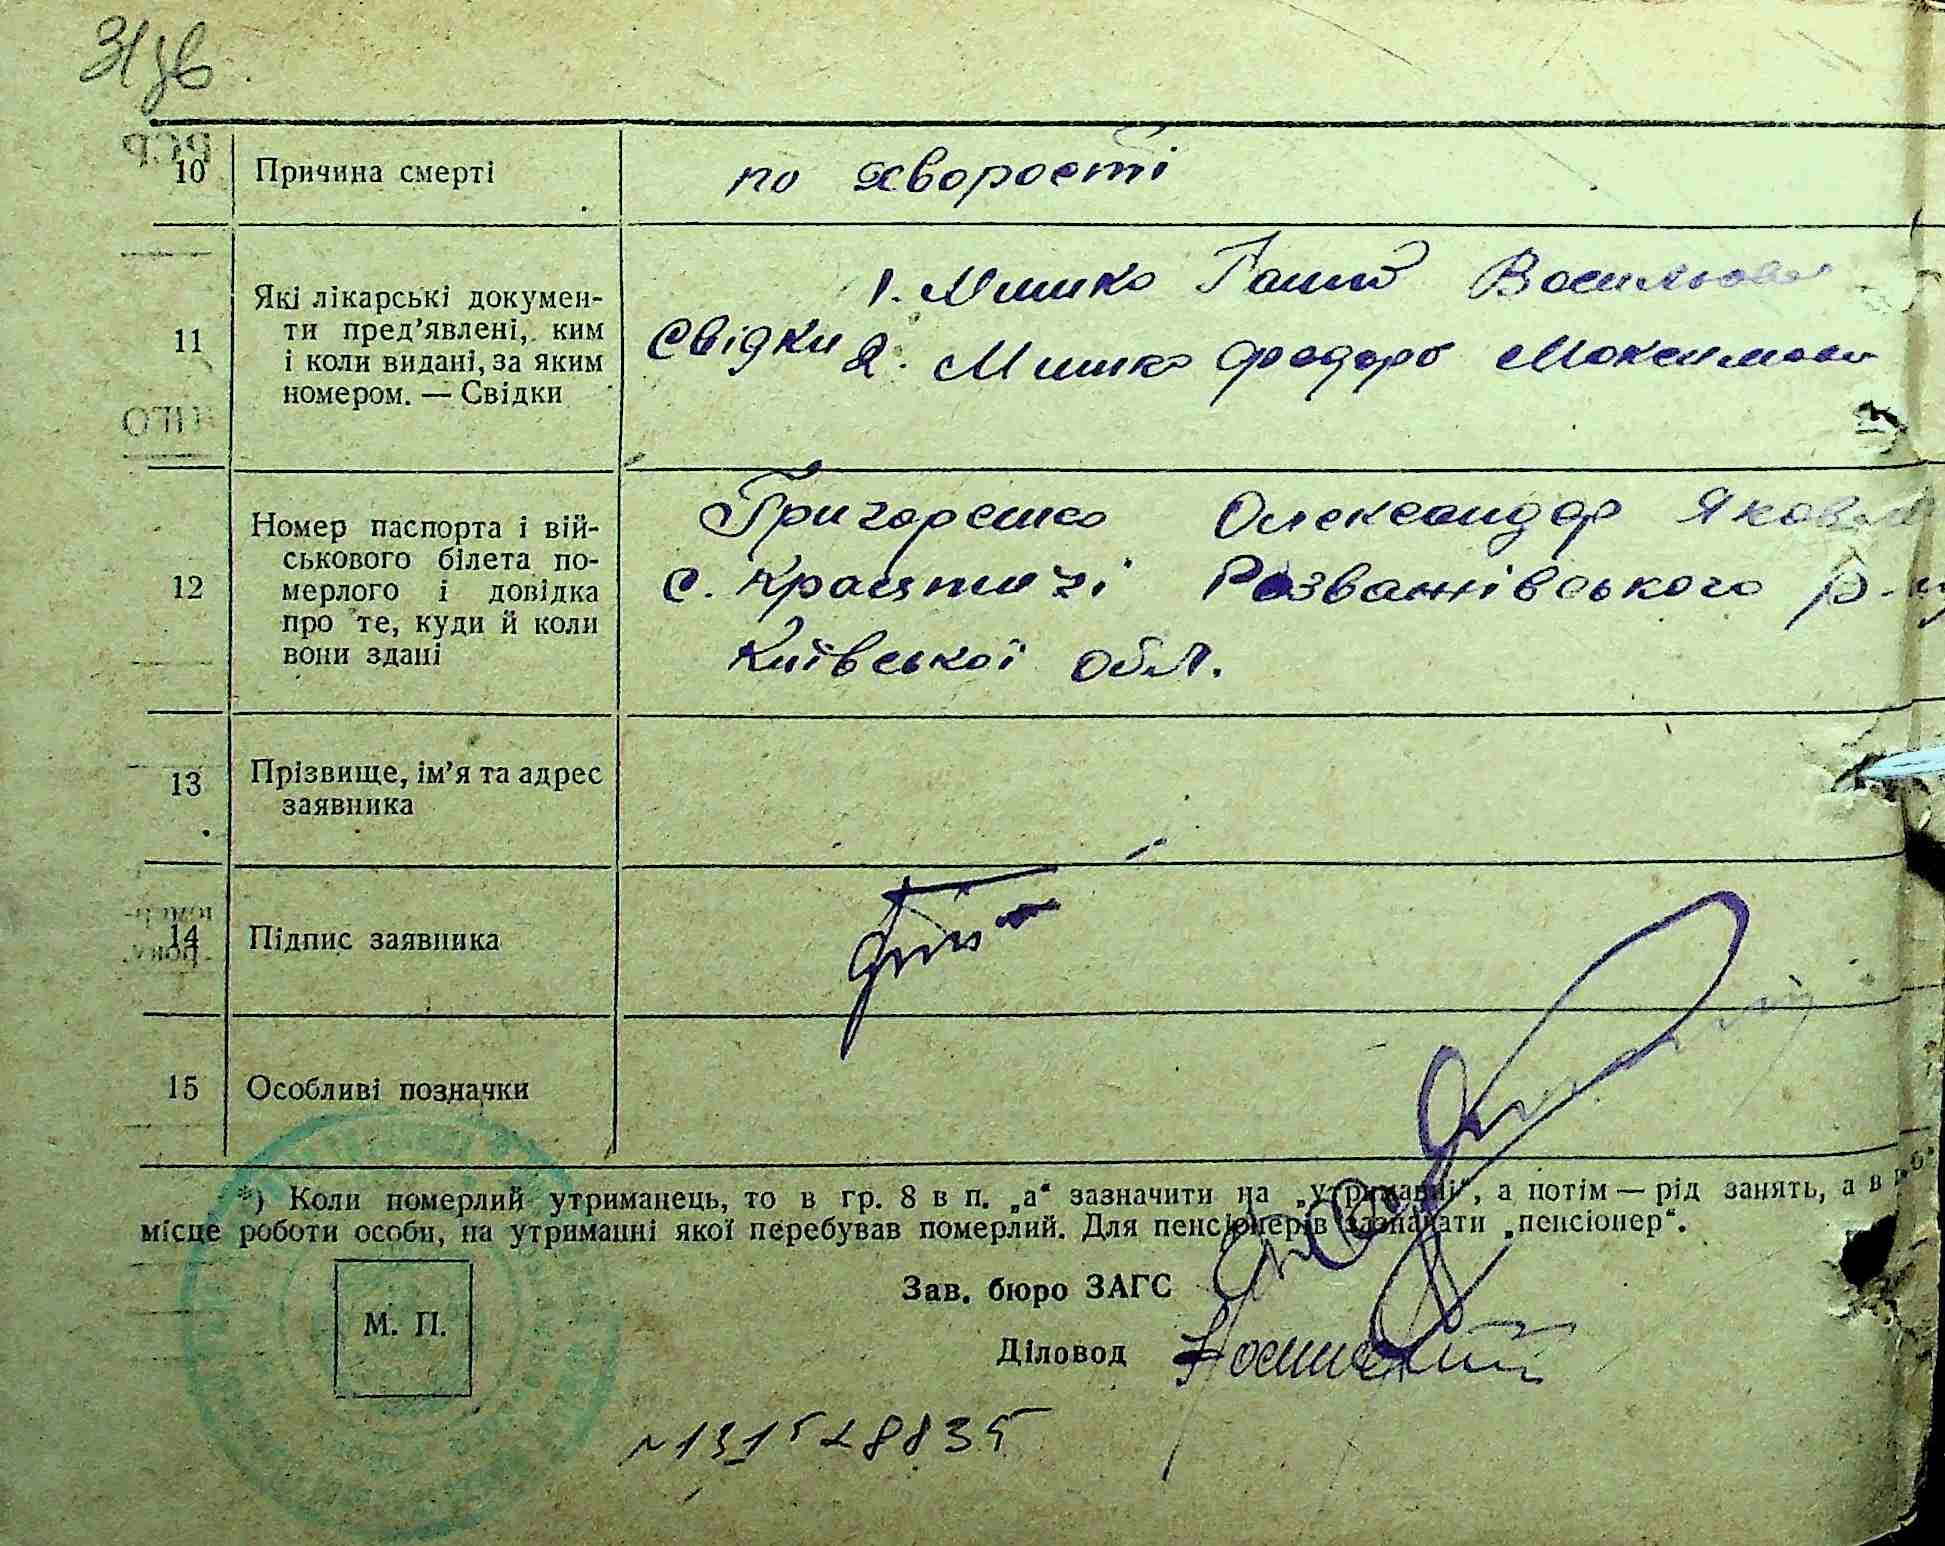 31 зв
10 Причина смерті по хворості
11 Які лікарські докумен-
ти пред'явлені, ким
і коли видані, за яким
номером. — Свідки
1. Мишко
Свідки 2. Мишко Федора
12 Номер паспорта і вій-
ськового білета по-
мерлого і довідка
про те, куди й коли
вони здані
Григоренко Олександр
с. Красятичі Розважівського р-ну
Київської обл.
13 Прізвище, ім'я та адрес
заявника
14 Підпис заявника
15 Особливі позначки
*) Коли померлий утриманець, то в гр. 8 в п. „а“ зазначити на „утриманні“, а потім — рід занять, а в
місце роботи особи, на утриманні якої перебував померлий. Для пенсіонерів зазначати „пенсіонер“.
Зав. бюро ЗАГС
М. П.
Діловод